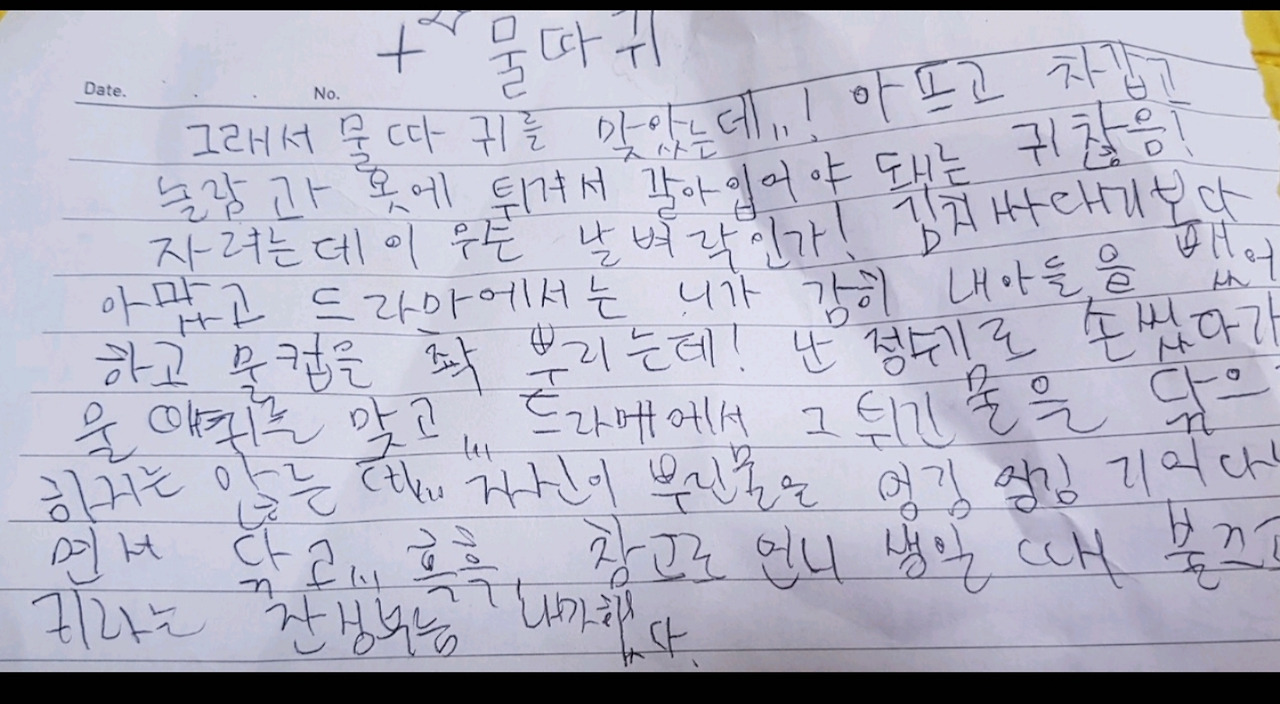 + 물따귀
Date. . . No.
그래서 물따귀를 맞았는데,,! 아프고 차갑고
놀람과 옷에 튀겨서 갈아입어야 돼는 귀찮음!
자려는데 이 무슨 날벼락인가! 김치싸대기보다
아맢고 드라마에서는 니가 감히 내아들을 뺐어
하고 물컵을 쫙 뿌리는데! 난 정수기로 손씼다가
물 먀귀를 맞고,,, 드라메에서 그 튀긴 물을 닦으
하지는 않는데,,, 자신이 뿌린물은 엉김 엉김 기어다니
면서 닦고,,, 흑흑, 참고로 언니 생일 때 불끄고
키라는 잔심부름 내가했다.